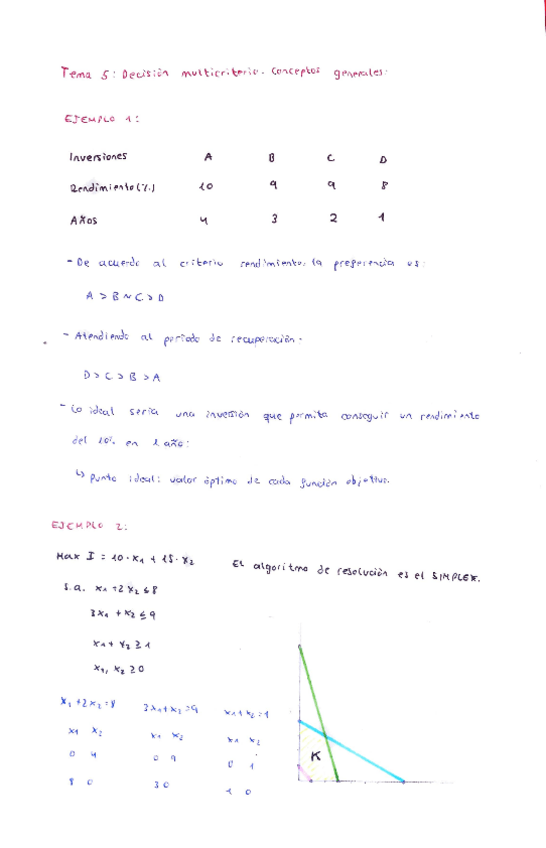 Tema 5: Decisión multicriterio. Conceptos generales.
EJEMPLO 1:
Inversiones A B C D
Rendimiento (%) 10 9 9 8
Años 4 3 2 1
- De acuerdo al criterio rendimiento, la preferencia es:
A > B ~ C > D
- Atendiendo al periodo de recuperación:
D > C > B > A
- Lo ideal sería una inversión que permita conseguir un rendimiento
del 10% en 1 año:
↳ Punto ideal: valor óptimo de cada función objetivo.
EJEMPLO 2:
Max I = 10·x₁ + 15·x₂ El algoritmo de resolución es el SIMPLEX.
s.a. x₁ + 2x₂ ≤ 8
3x₁ + x₂ ≤ 9
x₁ + x₂ ≥ 1
x₁, x₂ ≥ 0
x₁ + 2x₂ = 8 3x₁ + x₂ = 9 x₁ + x₂ = 1
x₁ x₂ x₁ x₂ x₁ x₂
0 4 0 9 0 1
8 0 3 0 1 0
K